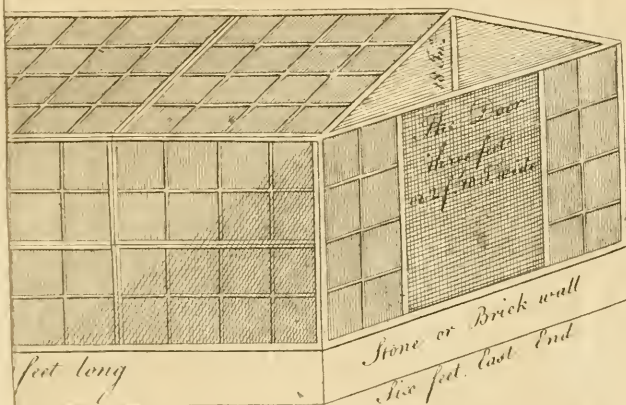 18 In.
The Door
three feet
or 2 f. 10 I. wide
feet long
Stone or Brick wall
Six feet. East End